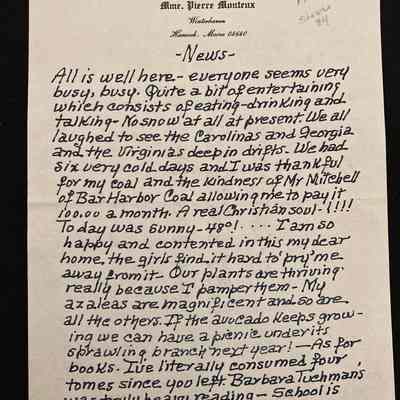 Mme. Pierre Monteux
Winterhaven
Hancock, Maine 04640
84
-News-
All is well here- everyone seems very
busy, busy. Quite a bit of entertaining
which consists of eating-drinking and
talking- No snow at all at present. We all
laughed to see the Carolinas and Georgia
and the Virginias deep in drifts. We had
six very cold days and I was thankful
for my coal and the kindness of Mr Mitchell
of Bar Harbor Coal allowing me to pay it
100.00 a month. A real Christian soul- (!!!!
To day was sunny- 48°! .... I am so
happy and contented in this my dear
home, the girls find it hard to 'pry' me
away from it- Our plants are thriving
really because I pamper them- My
azaleas are magnificent and so are
all the others. If the avocado keeps grow-
ing we can have a picnic under its
sprawling branch next year! - As for
books. I've literally consumed four
tomes since you left. Barbara Tuchman's
was truly heavy reading- School is